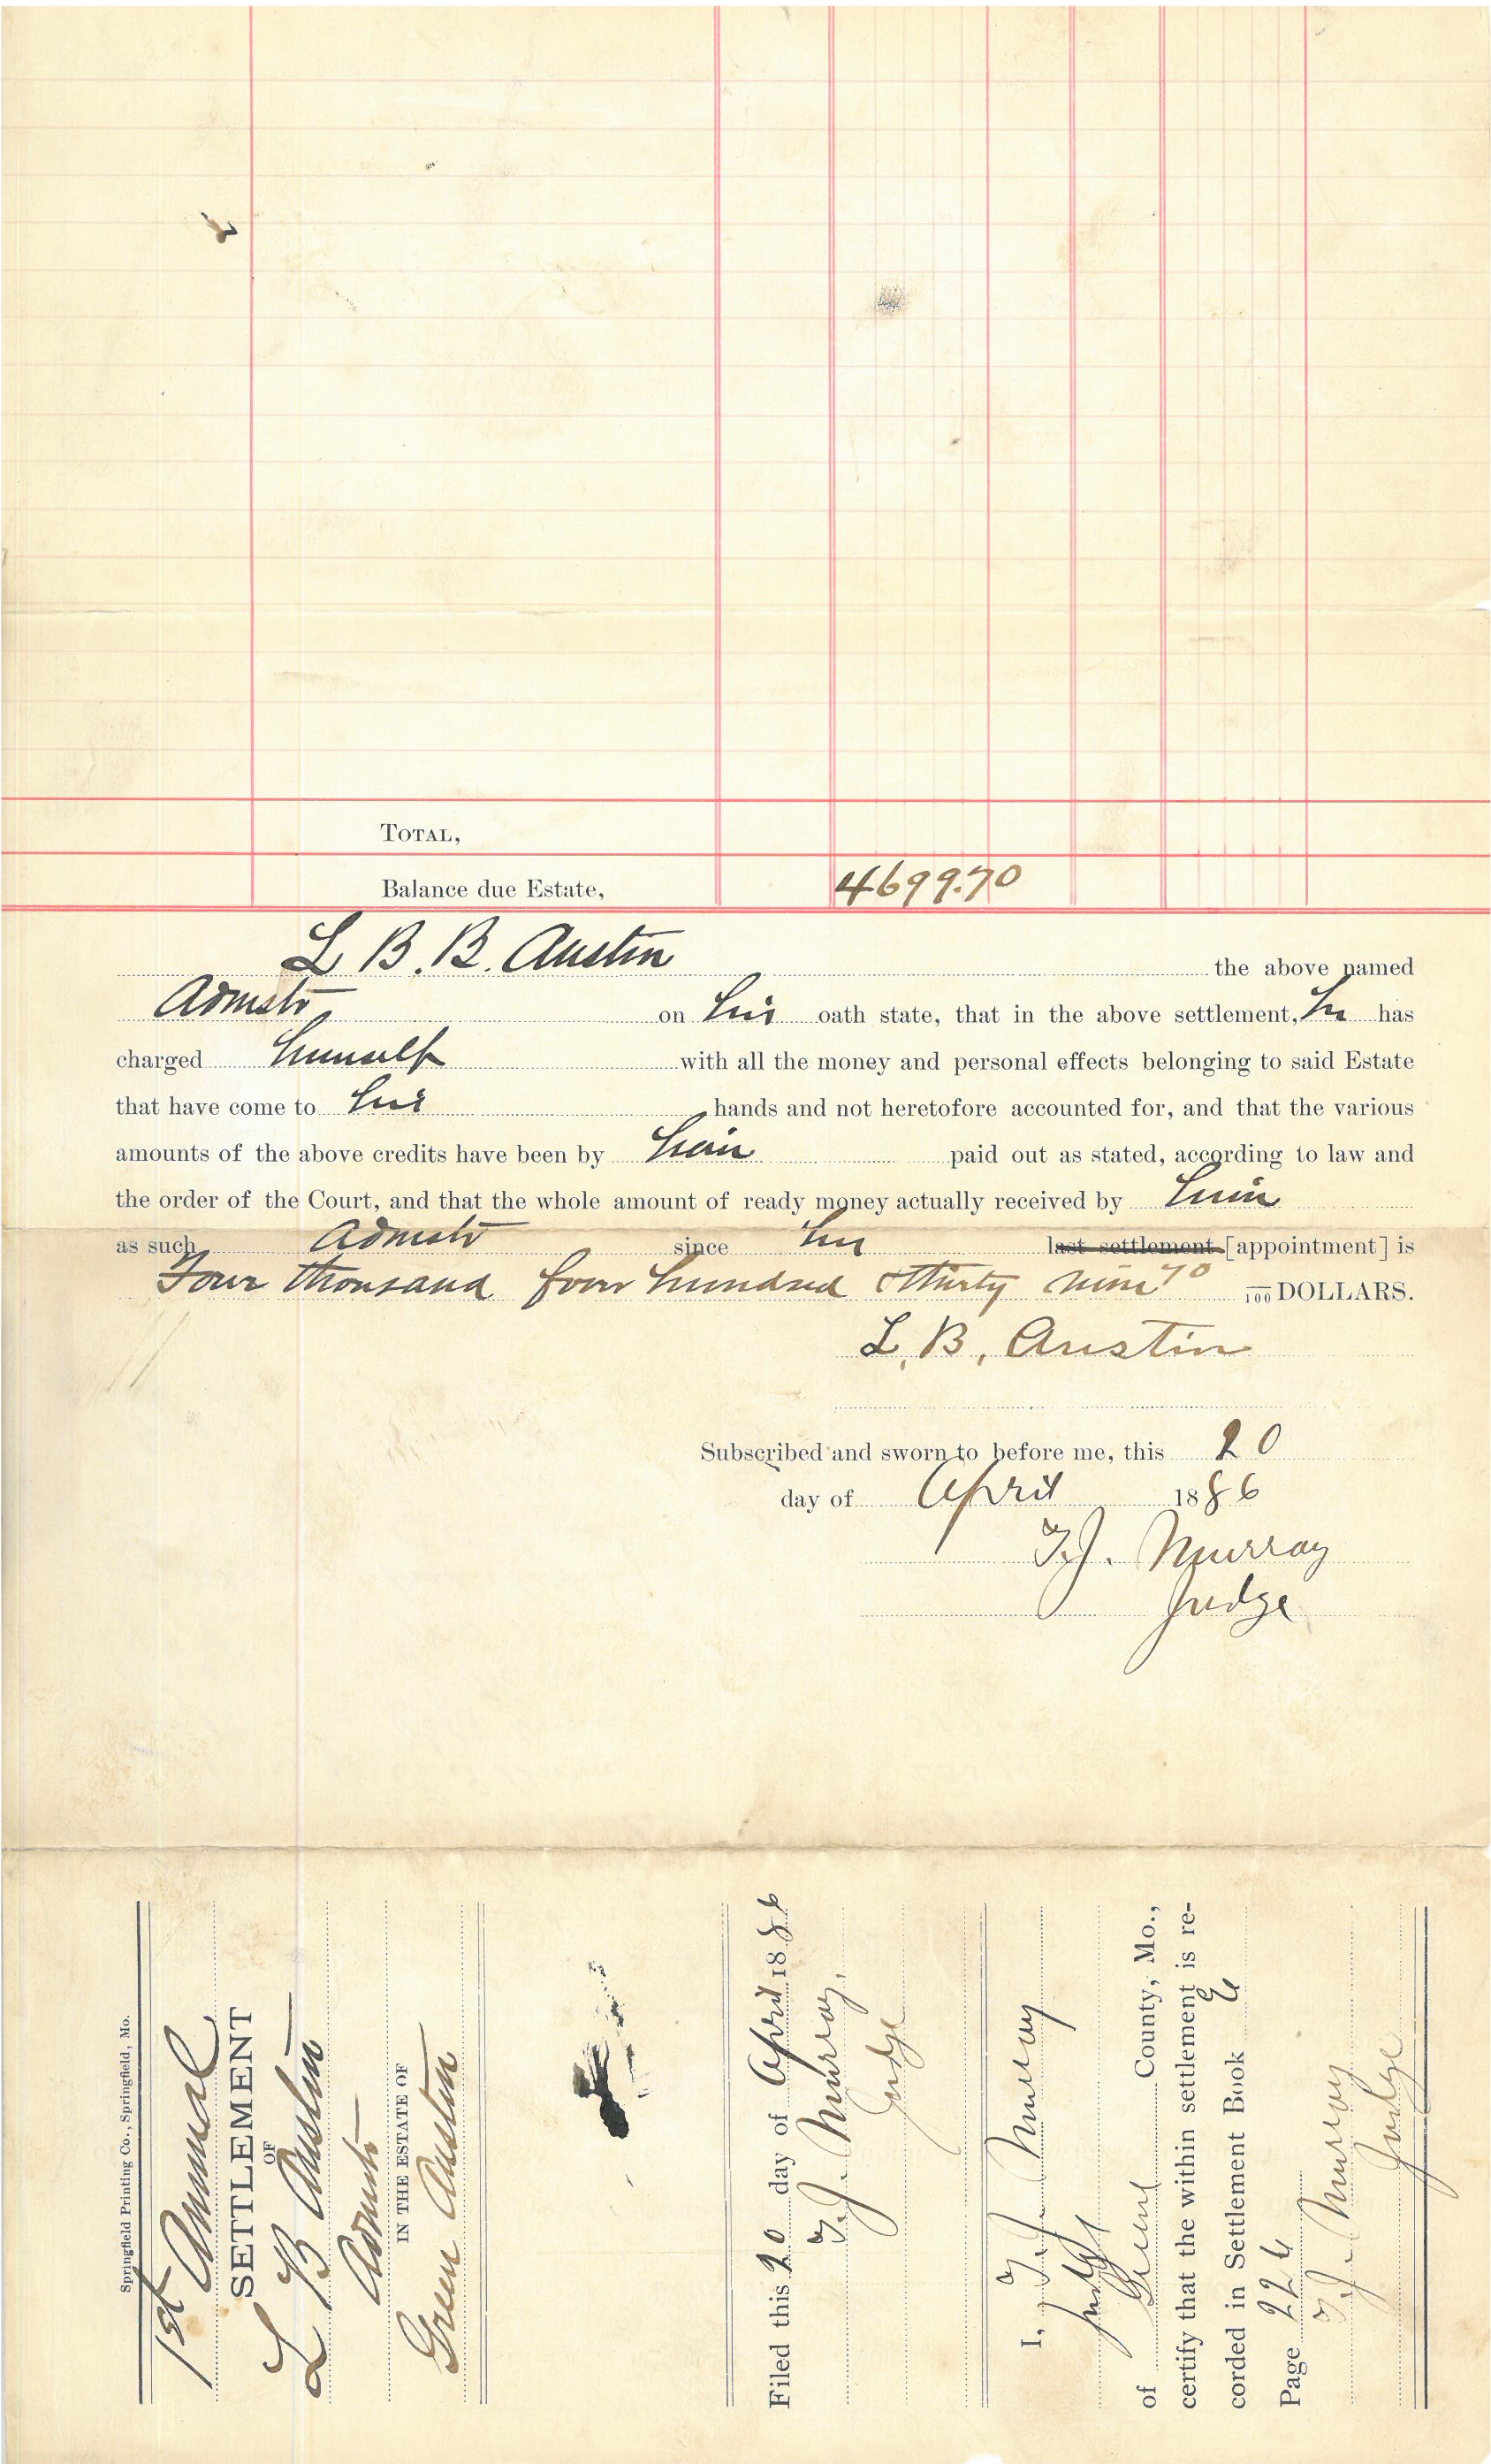 TOTAL,
Balance due Estate, 4699.70
L B. B. Austin the above named
Admstr on his oath state, that in the above settlement, he has
charged himself with all the money and personal effects belonging to said Estate
that have come to his hands and not heretofore accounted for, and that the various
amounts of the above credits have been by him paid out as stated, according to law and
the order of the Court, and that the whole amount of ready money actually received by him
as such Admstr since his last settlement [appointment] is
Four thousand four hundred & thirty nine 70 /100 DOLLARS.
L. B. Austin
Subscribed and sworn to before me, this 20
day of April 1886
T. J. Murray
Judge
Springfield Printing Co., Springfield, Mo.
1st Annual
SETTLEMENT
OF
L B Austin
Admstr
IN THE ESTATE OF
Green Austin
Filed this 20 day of April 1886
T. J. Murray,
Judge
I, T. J. Murray
Judge
of Greene County, Mo.,
certify that the within settlement is re-
corded in Settlement Book E
Page 226
T. J. Murray
Judge